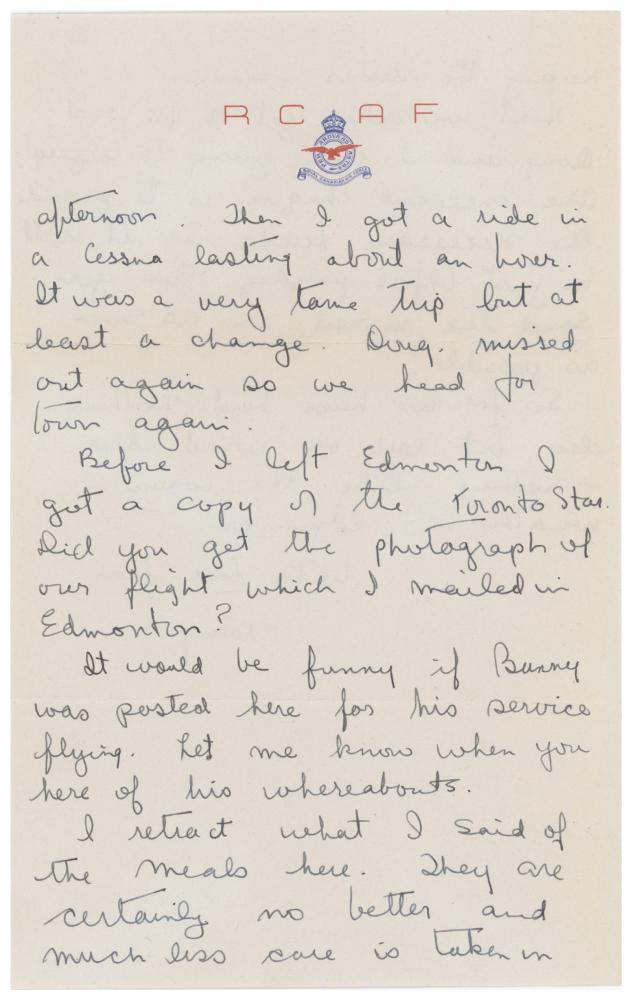 RCAF
PER ARDUA AD ASTRA
ROYAL CANADIAN AIR FORCE
afternoon. Then I got a ride in
a Cessna lasting about an hour.
It was a very tame trip but at
least a change. Doug. missed
out again so we head for
town again.
Before I left Edmonton I
got a copy of the Toronto Star.
Did you get the photograph of
our flight which I mailed in
Edmonton?
It would be funny if Bunny
was posted here for his service
flying. Let me know when you
here of his whereabouts.
I retract what I said of
the meals here. They are
certainly no better and
much less care is taken in